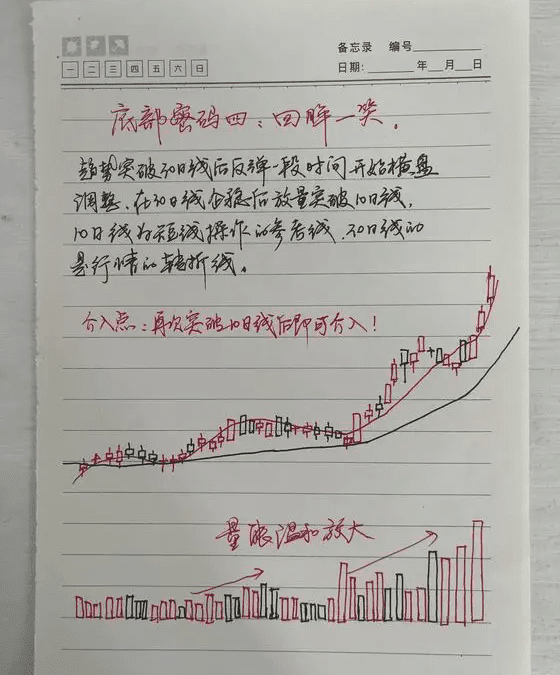 备忘录 编号
一 二 三 四 五 六 日
日期: 年 月 日
底部密码四：回眸一笑.
趋势突破30日线后反弹一段时间开始横盘
调整.在30日线企稳后放量突破10日线,
10日线为短线操作的参考线.30日线的
是行情的转折线.
介入点：再次突破10日线后即可介入!
量能温和放大